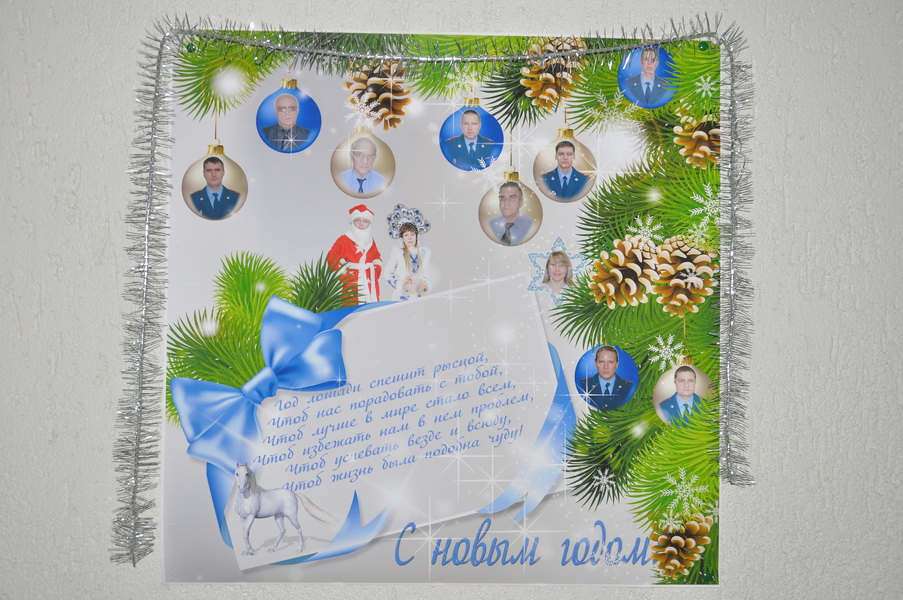 Год лошади спешит рысцой,
Чтоб нас порадовать с тобой,
Чтоб лучше в мире стало всем,
Чтоб избежать нам в нем проблем,
Чтоб успевать везде и всюду,
Чтоб жизнь была подобна чуду!
С новым годом